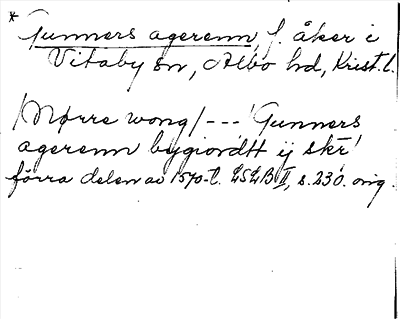 * Gunners agerenn, f. åker i
Vitaby sn, Albo hd, Krist. l.
/Nørre wong/ --- 'Gunners
agerenn bygiordtt ij skr'
förra delen av 1570-t. LSLB II, s. 230. orig.